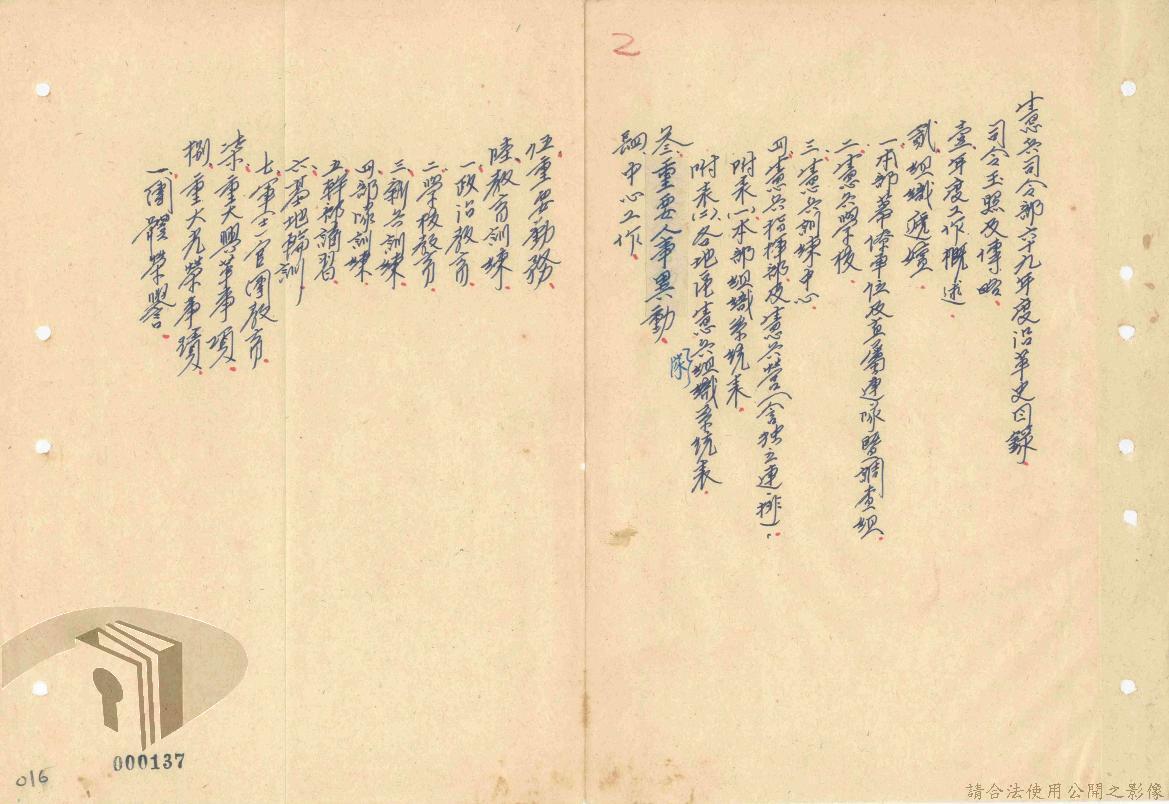 2
憲兵司令部六十九年度沿革史目錄.
司令玉照及傳略.
壹、年度工作概述.
貳、組織遞嬗.
一、本部幕僚單位及直屬連隊暨調查組.
二、憲兵學校.
三、憲兵訓練中心.
四、憲兵指揮部及憲兵營(含独立連排).
附表(一)、本部組織系統表.
附表(二)、各地區憲兵組織系統表.
隊
叁、重要人事異動.
肆、中心工作.
伍、重要勤務.
陸、教育訓練.
一、政治教育.
二、學校教育.
三、新兵訓練.
四、部隊訓練.
五、幹部講習.
六、基地輪訓.
七、軍士官團教育.
柒、重大興革事項.
捌、重大光榮事蹟.
一、團體榮譽.
000137
016
請合法使用公開之影像